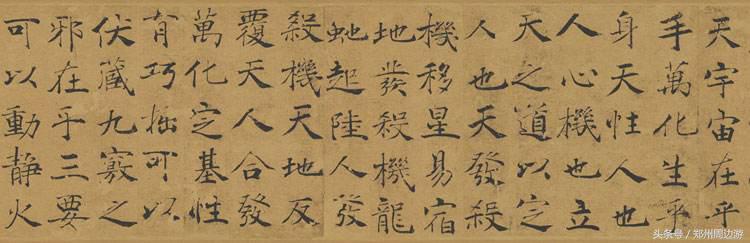 天宇宙在乎
手萬化生乎
身天性人也
人心機也立
天之道以定
人也天發殺
機移星易宿
地發殺機龍
虵起陸人發
殺機天地反
覆天人合發
萬化定基性
有巧拙可以
伏藏九竅之
邪在乎三要
可以動静火
头条号 / 郑州周边游